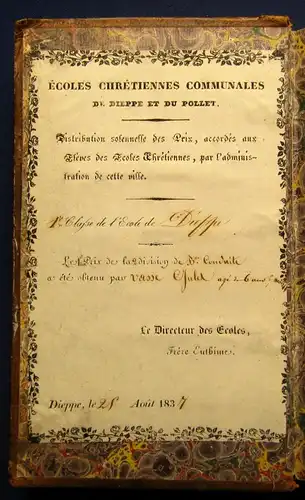 ÉCOLES CHRÉTIENNES COMMUNALES
DE DIEPPE ET DU POLLET.
Distribution solennelle des Prix, accordés aux
Élèves des Écoles Chrétiennes, par l'adminis-
tration de cette ville.
Classe de l'École de Dieppe
Le Prix de la division de Bne Conduite
a été obtenu par Vasse Jules agé de 6 ans
Le Directeur des Écoles,
Frère Euthime.
Dieppe, le 28 Août 1837